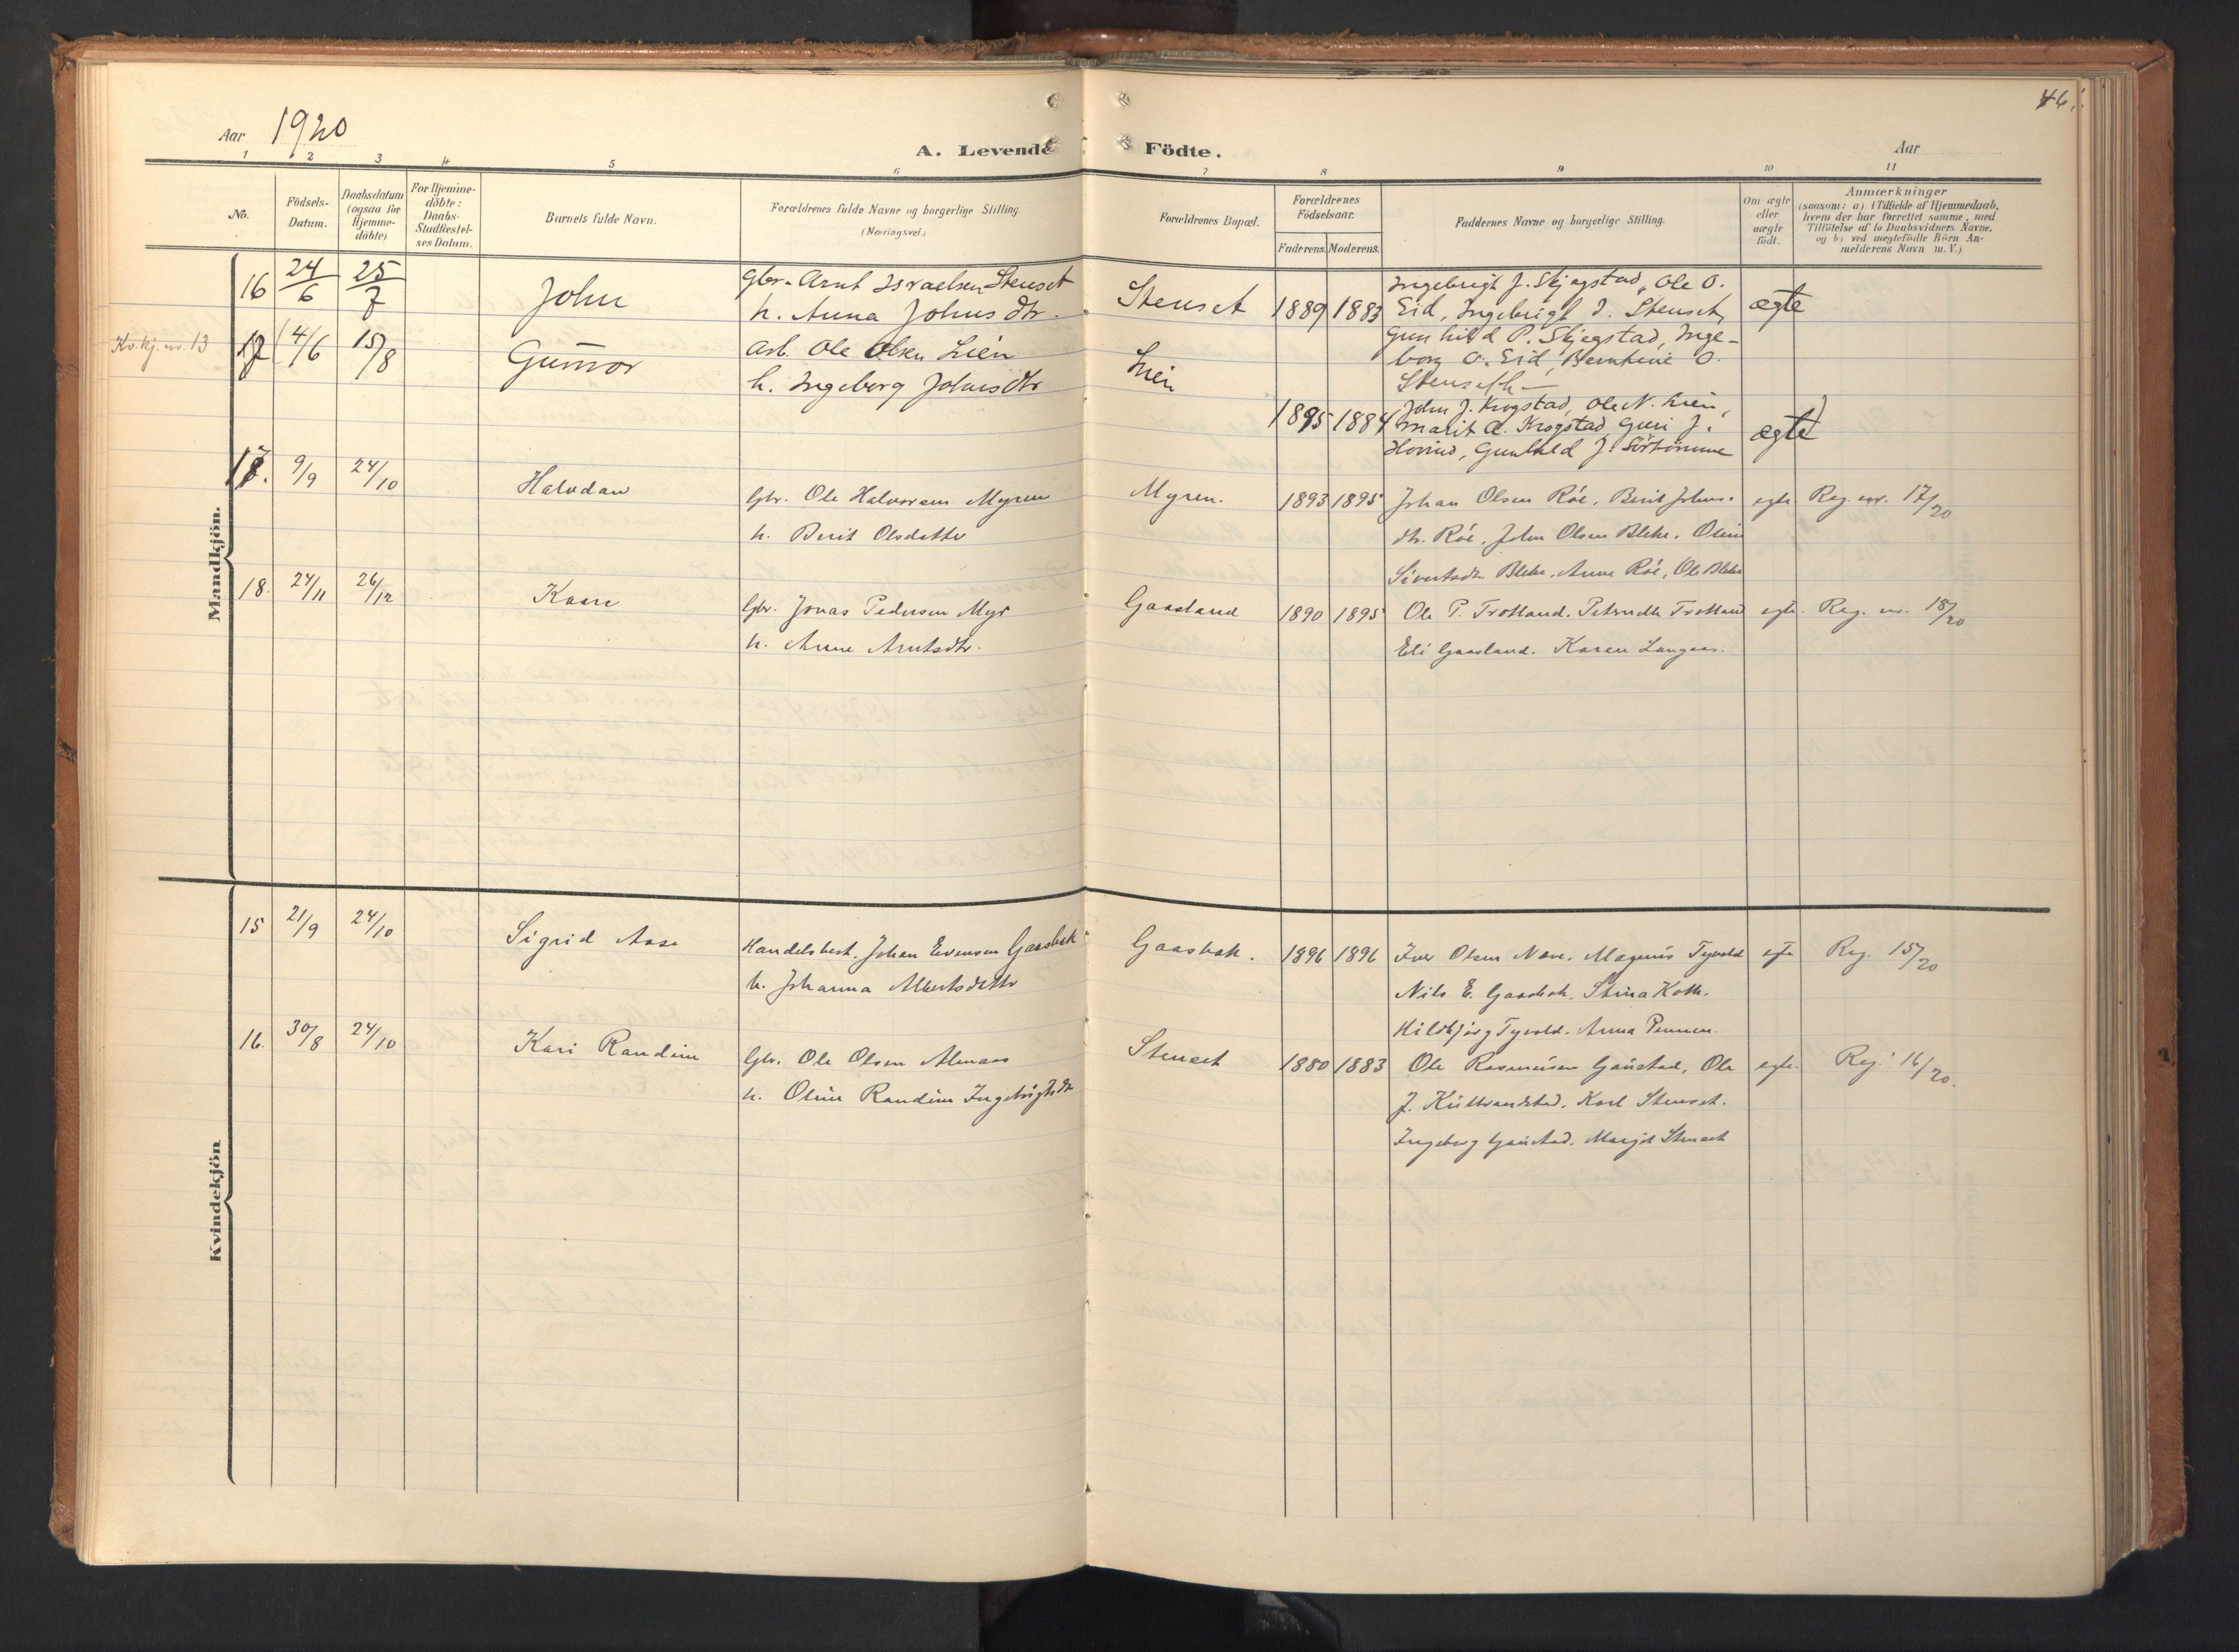 46.
Aar 1920
A. Levende Födte.
Aar
1 2 3 4 5 6 7 8 9 10 11
No.
Födsels-
Datum.
Daabsdatum
(ogsaa for
Hjemme-
döbte)
For Hjemme-
döbte:
Daabs-
Stadfæstel-
ses Datum.
Barnets fulde Navn.
Forældrenes fulde Navne og borgerlige Stilling.
(Næringsvei.)
Forældrenes Bopæl.
Forældrenes
Födselsaar.
Faderens. Moderens.
Faddernes Navne og borgerlige Stilling.
Om ægte
eller
uægte
födt.
Anmærkninger
(saasom: a) i Tilfælde af Hjemmedaab,
hvem der har forrettet samme, med
Tilföielse af to Daabsvidners Navne.
og b) ved uægtefödte Börn An-
melderens Navn m. V.)
Mandkjön.
16 24/6 25/7 John
Gbr. Arnt Israelsen Stenset
h. Anna Johnsdtr.
Stenset 1889 1883
Ingebrigt J. Skjegstad, Ole O.
Eid, Ingebrigt I. Stenset,
Gunhild P. Skjegstad, Inge-
borg O. Eid, Berntine O.
Stenseth
ægte
Kv.kj. nr. 13
17 4/6 15/8 Gunvor
Arb. Ole Olsen Lien
h. Ingeborg Johnsdtr
Lien 1895 1884
John J. Krogstad, Ole N. Lien,
Marit A. Krogstad Guri J.
Hovind, Gunhild J. Sörtömme
ægte
17. 9/9 24/10 Halvdan
Gbr. Ole Halvorsen Myren
h. Berit Olsdatter
Myren. 1893 1895
Johan Olsen Röe, Berit Johns-
dtr. Röe, John Olsen Blekr, Oline
Sivertsdtr. Blekr, Anne Röe, Ole Blekr
egte Reg. nr. 17/20
18. 24/11 26/12 Kaare
Gbr. Jonas Pedersen Myr
h. Anne Arntsdtr.
Gaasland 1890 1895
Ole P. Trotland. Petrnelle Trotland
Eli Gaasland. Karen Langaas.
egte. Reg. nr. 18/20
Kvindekjön
15 21/9 24/10 Sigrid Aase
Handelsbest. Johan Evensen Gaasbak
h. Johanna Albertsdatter
Gaasbak. 1896 1896
Iver Olsen Næve. Magnus Tyvold
Nils E. Gaasbak. Stina Koth.
Hildbjörg Tyvold. Anna Pennen.
egte Reg. 15/20
16. 30/8 24/10 Kari Randine
Gbr. Ole Olsen Almaas
h. Oline Randine Ingebrigtsdtr
Stenset 1880 1883
Ole Rasmusen Gaustad, Ole
J. Kulbrandstad. Karl Stenset.
Ingeborg Gaustad. Margit Stenset
egte. Reg. 16/20.